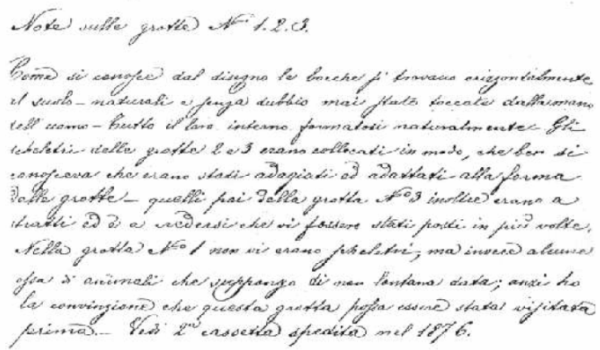 Note sulle grotte N.i 1.2.3.
Come si conosce dal disegno le bocche si trovano orizzontalmente
al suolo - naturali e senza dubbio mai state toccate dalla mano
dell'uomo - Tutto il loro interno formatosi naturalmente. Gli
scheletri delle grotte 2 e 3 erano collocati in modo, che ben si
conosceva che erano stati adagiati ed adattati alla forma
delle grotte - quelli poi della grotta N.o 3 inoltre erano a
stratti ed è a credersi che vi fossero stati posti in più volte.
Nella grotta N.o 1 non vi erano scheletri, ma invece alcune
ossa di animali che suppongo di non lontana data; anzi ho
la convinzione che questa grotta possa essere stata visitata
prima - Vedi 2.a cassetta spedita nel 1876.